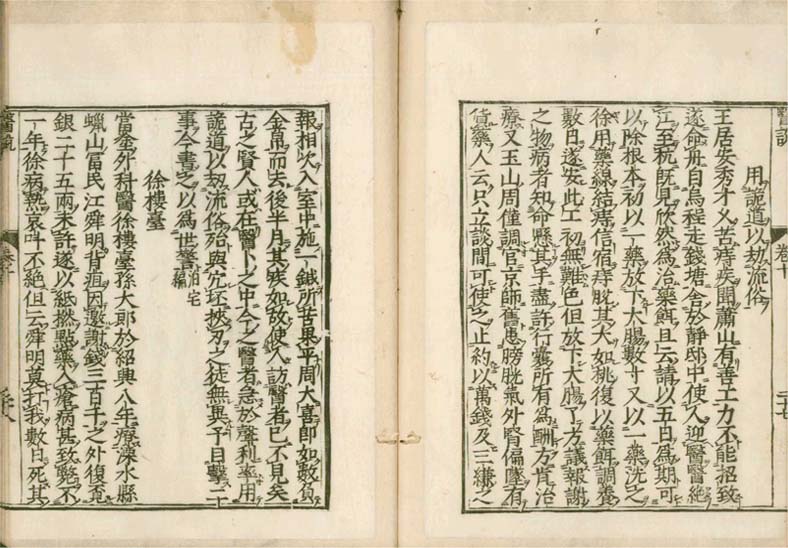 用詭道以劫流俗
王居安秀才久苦痔疾聞蕭山有善工力不能招致
遂命舟自烏程走錢塘舍於靜邸中使人迎醫醫絕
江至杭既見欣然為治藥餌且云請以五日為期可
以除根本初以一藥放下大腸數寸又以一藥洗之
徐用藥線結痔信宿痔脫其大如桃復以藥餌調養
數日遂安此工初無難色但放下大腸了方議報謝
之物病者知命懸其手盡許行橐所有為酬方肯治
療又玉山周僅調官京師舊患膀胱氣外腎偏墜有
貨藥人云只立談間可使之止約以萬錢及三縑之
報相次入室中施一鍼所苦果平周大喜即如數負
金帛而去後半月其疾如故使人訪醫者已不見矣
古之賢人或在醫卜之中今之醫者急於聲利率用
詭道以劫流俗殆與穴坯挾刃之徒無異予目擊二
事今書之以為世警泊宅編
徐樓臺
當塗外科醫徐樓臺孫大郎於紹興八年療溧水縣
蠟山富民江舜明背疽因邀謝錢三百千之外復索
銀二十五兩未許遂以紙撚點藥入瘡病甚致斃不
一年徐病熱哀叫不絕但云舜明莫打我數日死其